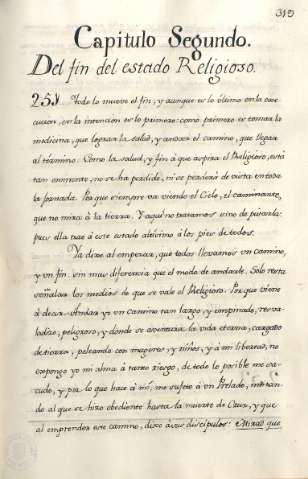 319
Capitulo Segundo.
Del fin del estado Religioso.
253 Todo lo mueve el fin, y aunque es lo ultimo en la exe
cucion, en la intencion es lo primero: como primero es tomar la
medicina, que lograr la salud, y andar el camino, que llegar
al término. Como la salud, y fin á que aspira el Religioso, está
tan eminente, no se ha perdido, ni se perderá de vista en toda
la jornada. Porque siempre va viendo el Cielo, el caminante,
que no mira à la tierra. Y aqui no tratamos sino de
pues ella trae á este estado altisimo á los pies de todos.
Ya dexe al empezar, que todos llevamos un camino,
y un fin sin mas diferencia que el modo de andarle. Solo resta
señalar los medios de que se vale el Religioso. Porque viene
á decir: Andar yo un camino tan largo, y empinado, res
valadizo, peligroso, y donde se aventura la vida eterna, cargado
de tierra, peleando con mugeres, y niños, y á mi libertad, no
expongo yo mi alma à tanto riesgo, de todo lo posible me
cudo, y por lo que hace à mí, me sujeto á un Prelado, imitan
do al que se hizo obediente hasta la muerte de Cruz, y que
al emprender este camino, dixo á sus discipulos: Mirad que